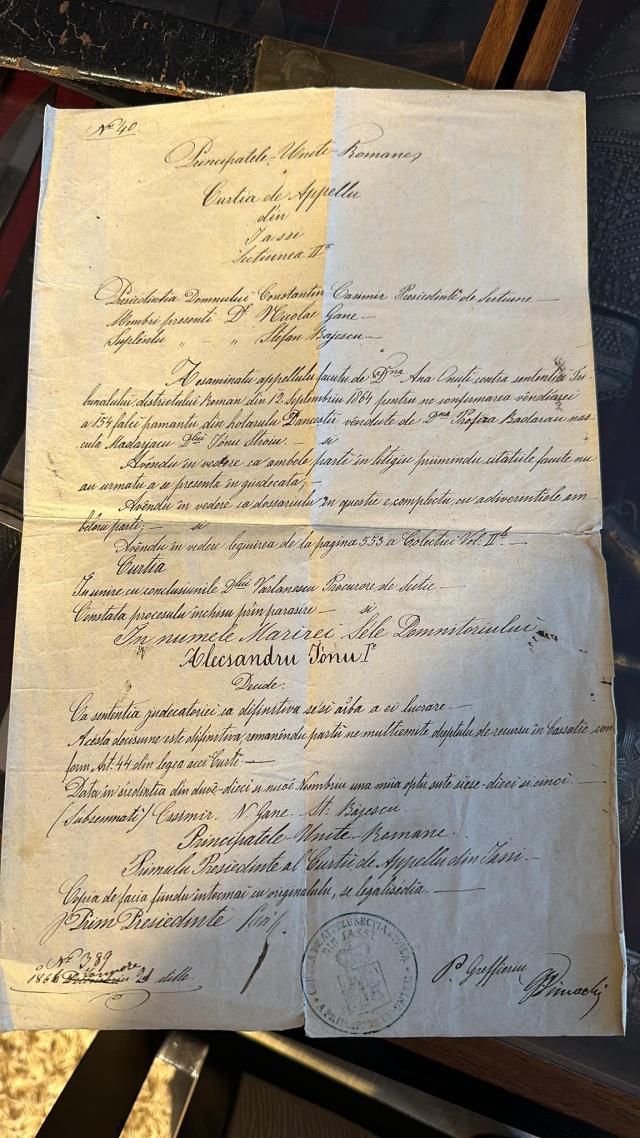 Nº 40.
Principatele-Unite-Romane
Curtia de Appellu
din
Iassi
Sectiunea IIª
Presiedintia Domnului Constantin Casimir Presiedinte de Sectiune —
Membri presenti Dˡ Nicolae Gane —
Suplentu „ - „ Stefan Bajescu —
Acsaminatu appellului facutu de Dna Ana Onuti contra sententia Tri-
bunalului districtului Roman din 12 Septembriu 1864 pentru ne confirmarea vendiarei
a 154 falci pamantu din hotarulu Dancestii vendute de Dna Profira Badarau nas-
cuta Madarjacu Dlui Ionu Stroiu. — si
Avêndu in vedere ca ambele parti in litigiu priimindu citatiile facute nu
au urmatu a se presenta in giudecată; —
Avêndu in vedere ca dossariulu in questie e complectu cu adiverintiele am-
beloru parti; — si
Avêndu in vedere leguirea de la pagina 553 a Colectiei Vol. II le —
Curtia
In unire cu conclusiunile Dlui Varlanescu Procurore de Sectie —
Constata procesulu inchisu prin parasire — si
In numele Marirei Sele Domnitoriului
Alecsandru Iónu Iº
Decide:
Ca sententia judecatoriei ca difinitiva se-si aiba a ei lucrare —
Acesta decisiune este difinitiva, remanêndu partii ne multiemite dreptulu de recursu in Cassatie con-
form Art. 44 din legea acei Curti —
Data in siedintia din duoê-dieci si nuoê Noembriu una miia optu sute siese-dieci si cinci.
(Subsemnati) Casimir. N. Gane. St. Băjescu
Principatele-Unite-Romane.
Primulu Presiedinte al Curtii de Appellu din Iassi. —
Copia de facia fiindu intocmai cu originalulu, se legalisedia. —
p Prim Presiedinte
Nº 389
1866 21 dille
CURTEA DE APELU SECTIA
DIN IASSI
A PRINCIPATELOR UNITE
P. Greffieru